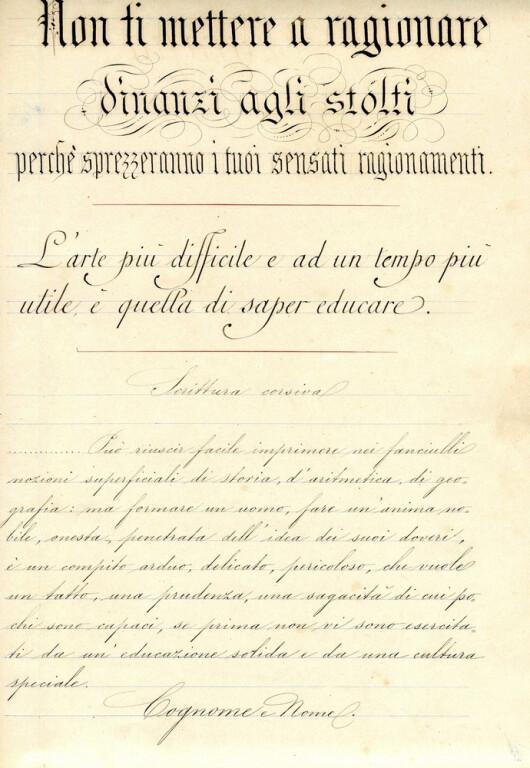 Non ti mettere a ragionare
dinanzi agli stolti
perchè sprezzeranno i tuoi sensati ragionamenti.
L'arte più difficile e ad un tempo più
utile, è quella di saper educare.
Scrittura corsiva
............. Può riuscir facile imprimere nei fanciulli
nozioni superficiali di storia, d'aritmetica, di geo-
grafia: ma formare un uomo, fare un'anima no-
bile, onesta, penetrata dell'idea dei suoi doveri,
è un compito arduo, delicato, pericoloso, che vuole
un tatto, una prudenza, una sagacità di cui po-
chi sono capaci, se prima non vi sono esercita-
ti da un'educazione solida e da una cultura
speciale.
Cognome e Nome.